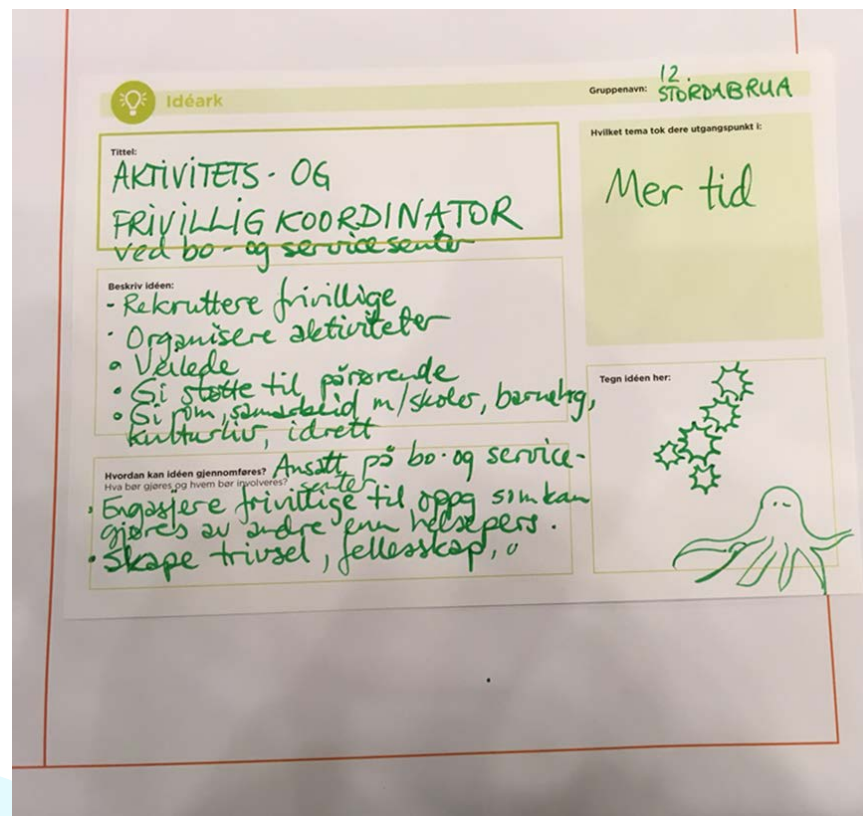 Idéark
Gruppenavn: 12.
STORDABRUA
Tittel:
AKTIVITETS- OG
FRIVILLIG KOORDINATOR
ved bo- og servicesenter
Hvilket tema tok dere utgangspunkt i:
Mer tid
Beskriv idéen:
- Rekruttere frivillige
• Organisere aktiviteter
• Veilede
• Gi støtte til pårørende
• Gi rom, samarbeid m/skoler, barnehg,
kulturliv, idrett
Tegn idéen her:
Hvordan kan idéen gjennomføres? Ansatt på bo- og service-
Hva bør gjøres og hvem bør involveres? senter
• Engasjere frivillige til oppg som kan
gjøres av andre enn helsepers.
• Skape trivsel, fellesskap,